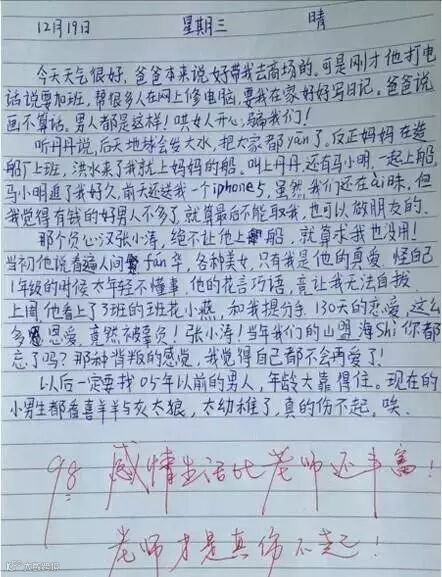 12月19日 星期三 晴
今天天气很好,爸爸本来说好带我去商场的。可是刚才他打电
话说要加班,帮很多人在网上修电脑,要我在家好好写日记。爸爸说
画不算话。男人都是这样!哄女人开心,骗我们!
听丹丹说,后天地球会发大水,把大家都yān了。反正妈妈在造
船厂上班,洪水来了我就上妈妈的船。叫上丹丹,还有马小明,一起上船,
马小明追了我好久,前天还送我一个iphone5,虽然我们还在ài昧,但
我觉得有钱的好男人不多了,就算最后不能取我,也可以做朋友的。
那个负心汉张小涛,绝不让他上船,就算求我也没用!
当初他说看遍人间fán华,各种美女,只有我是他的真爱,怪自己
1年级的时候太年轻不懂事,他的花言巧语,竟让我无法自拔。
上周他看上了3班的班花小燕,和我提分手,130天的恋爱,这么
多恩爱,竟然被辜负!张小涛!当年我们的山盟海Shi你都
忘了吗?那种背叛的感觉,我觉得自己都不会再爱了!
以后一定要找05年以前的男人,年龄大靠得住。现在的
小男生都看喜羊羊与灰太狼,太幼稚了,真的伤不起,唉。
98 感情生活比老师还丰富!
老师才是真伤不起!